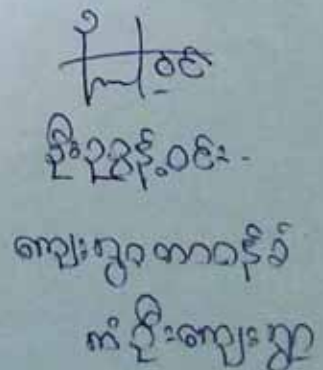 ဦးဥာဏ်ဝင်း
ကျေးရွာတာဝန်ခံ
ကံဦးကျေးရွာ